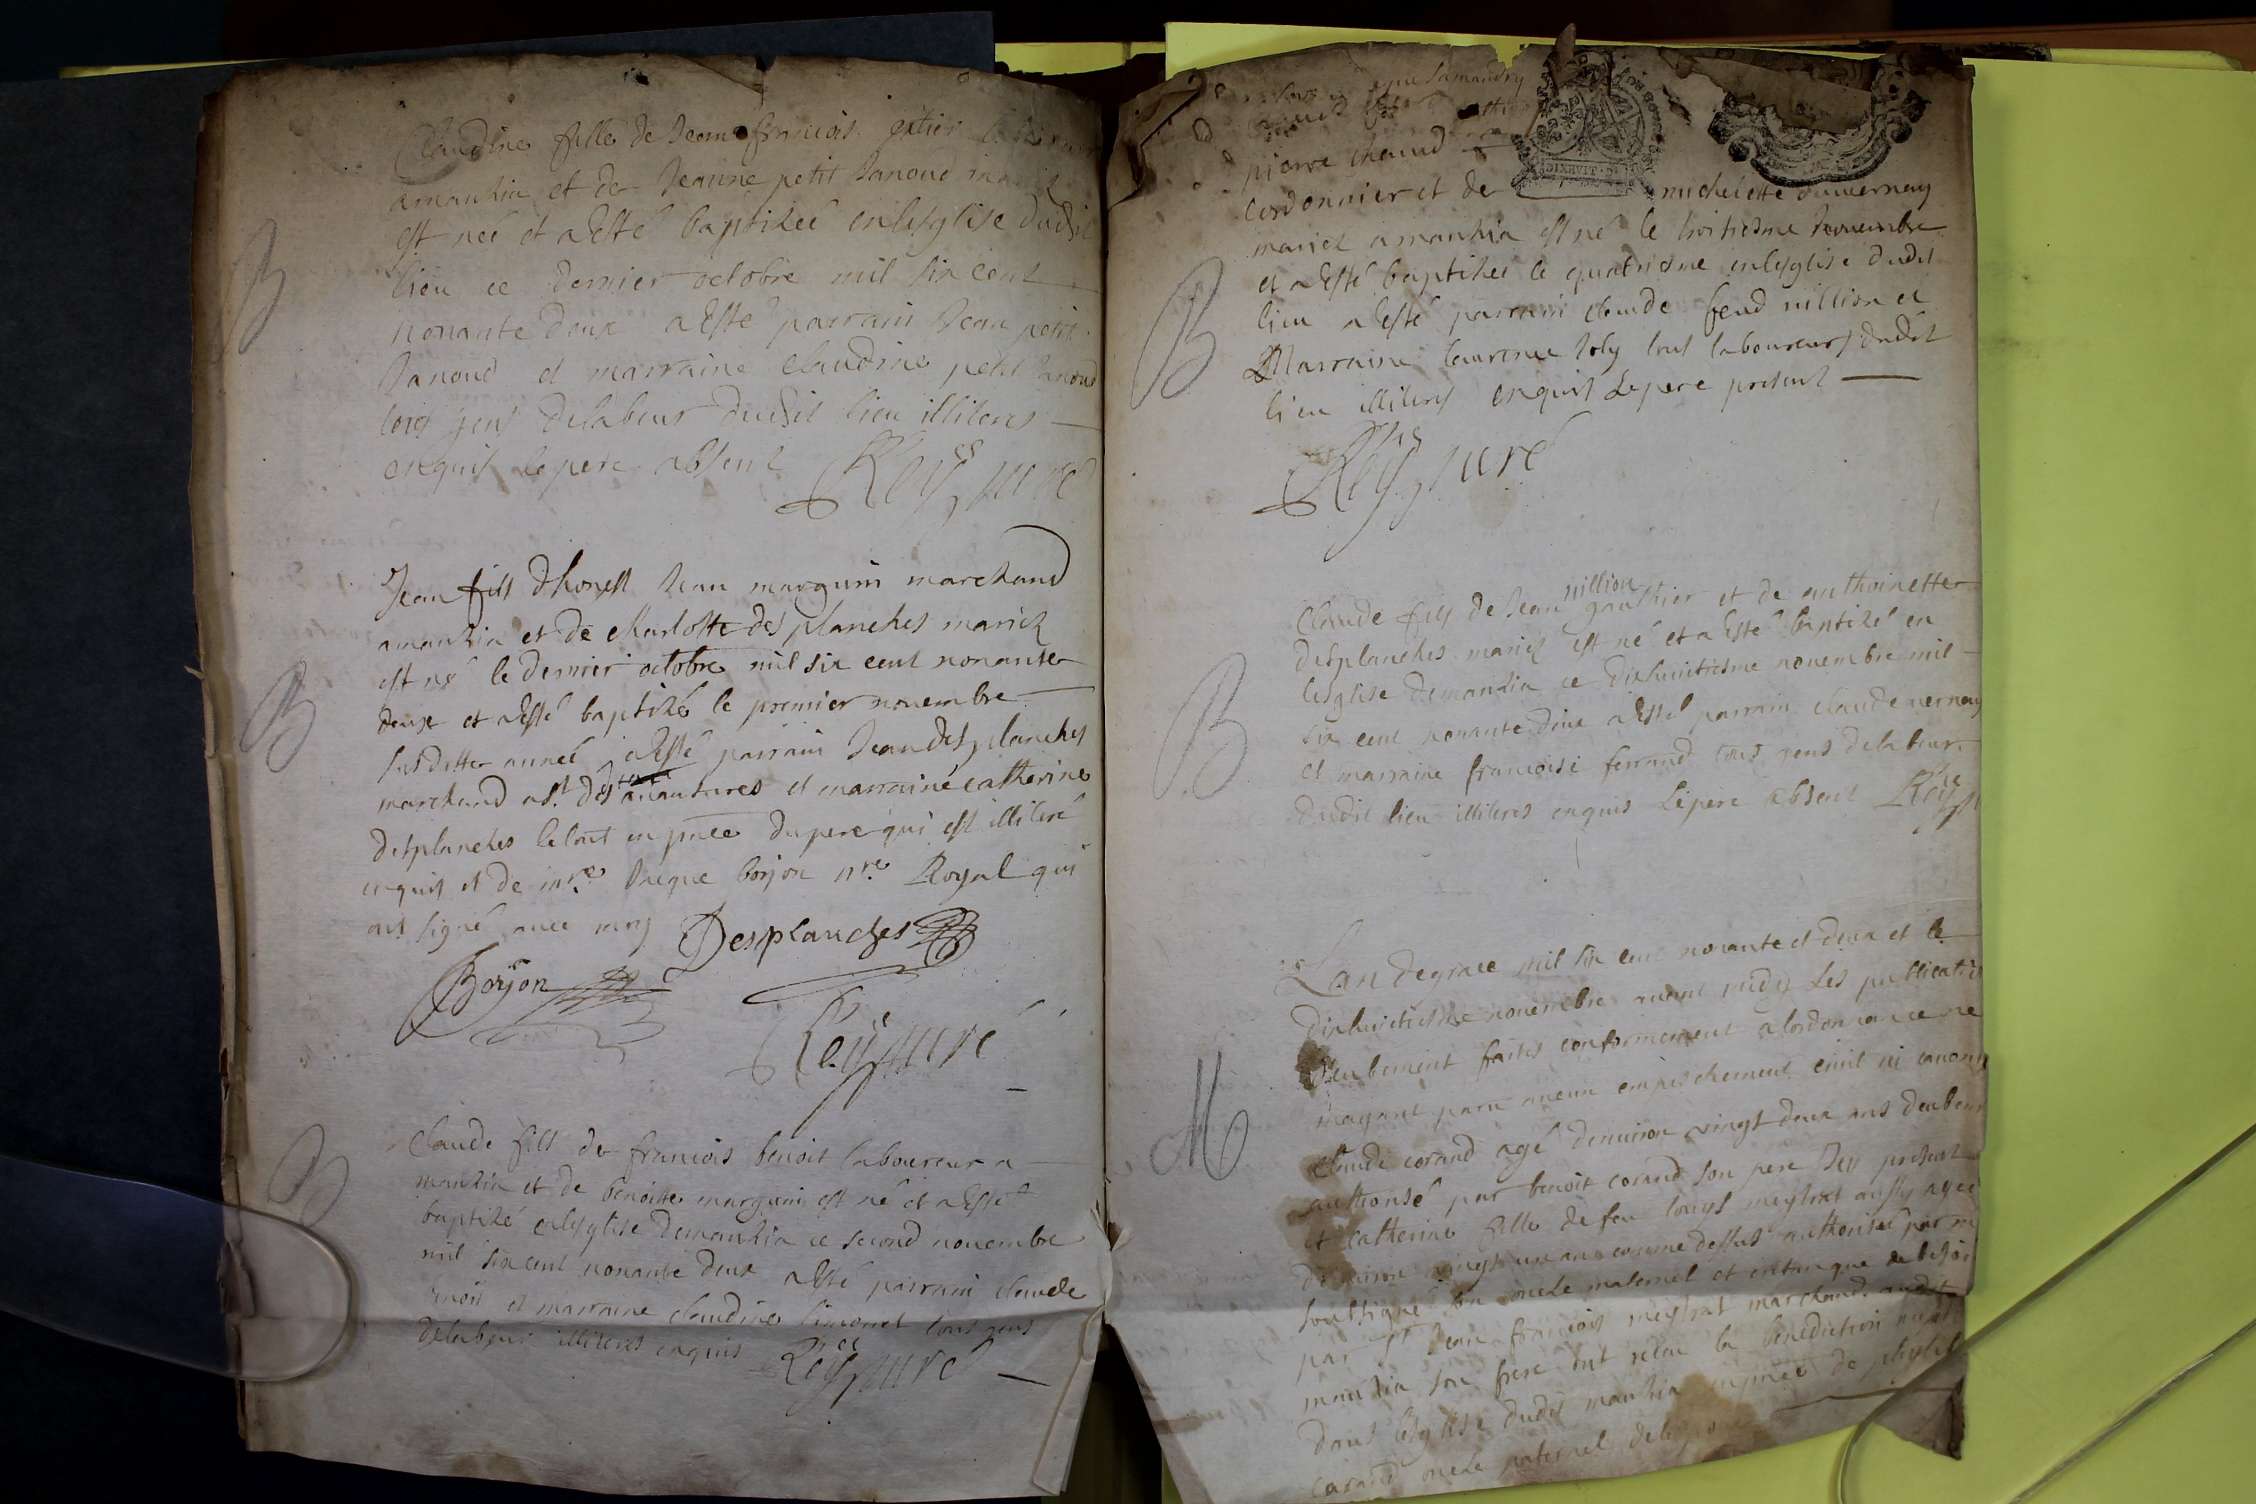 Claudine fille de Jean francois
amanzia et de Jeanne petit Janoud mariez
est neé et a Esté baptizeé en lesglise dudit
lieu ce dernier octobre mil six cent
nonante deux a Esté parrain Jean petit
Janoud et marraine claudine petit Janoud
tous gens delabeur dudit lieu illiteres
enquis lepere absent Reÿ curé
B
Jean fils dhonest Jean marguin marchand
amanzia et de charlotte des planches mariez
est né le dernier octobre mil six cent nonante
deux et a Esté baptizé le premier nouembre
susditte année a Esté parrain Jean des planches
marchand
et marraine catherine
desplanches le tout en pnce du pere qui est illiteré
enquis et de mre Jaque borjon nre Royal qui
ont signé auec moy Desplanches
Borjon
Reÿ curé
B
Claude fils de francois benoit laboureur a
manzia et de benoitte marguin est né et a Esté
baptizé en lesglise demanzia ce second nouembre
mil six cent nonante deux a Esté parrain claude
benoit et marraine claudine simonet tous gens
delabeur illiteres enquis Reÿ curé
B
pierre chanud
cordonnier et de michelette duuernay
mariez amanzia est né le troisiesme nouembre
et a Esté baptizeé le quatriesme en lesglise dudit
lieu a Esté parrain claude feud nillion et
Marraine laurence Joly tous laboureurs dudit
lieu illiteres enquis Le pere present
Reÿ curé
B
nillion
Claude fils de Jean gauthier et de anthoinette
desplanches mariez est né et a Esté baptizé en
lesglise demanzia ce dixhuitiesme nouembre mil
six cent nonante deux a Esté parrain claude uernay
et marraine francoise ferrand tous gens delabeur
dudit lieu illiteres enquis Lepere absent Reÿ
M
Lan degrace mil six cent nonante et deux et le
dixhuictiesme nouembre auant midy Les publicatio
deubement faites conformement a lordonnance ne
nayant paru aucun empeschement ciuil ni canoni
Claude corand agé denuiron vingt deux ans deubem
authorisé par benoit corand son pere Icy present
et catherine fille de feu louys meystrat aussy ageé
denuiron vingt un ans comme dessus authorisée par m
soubsigné son oncle maternel et entanque de besoin
par st Jean francois meystrat marchand audit
manzia son frere ont receu la benediction nupt
dans lesglise dudit manzia en pnce de
corand oncle paternel de lespoux